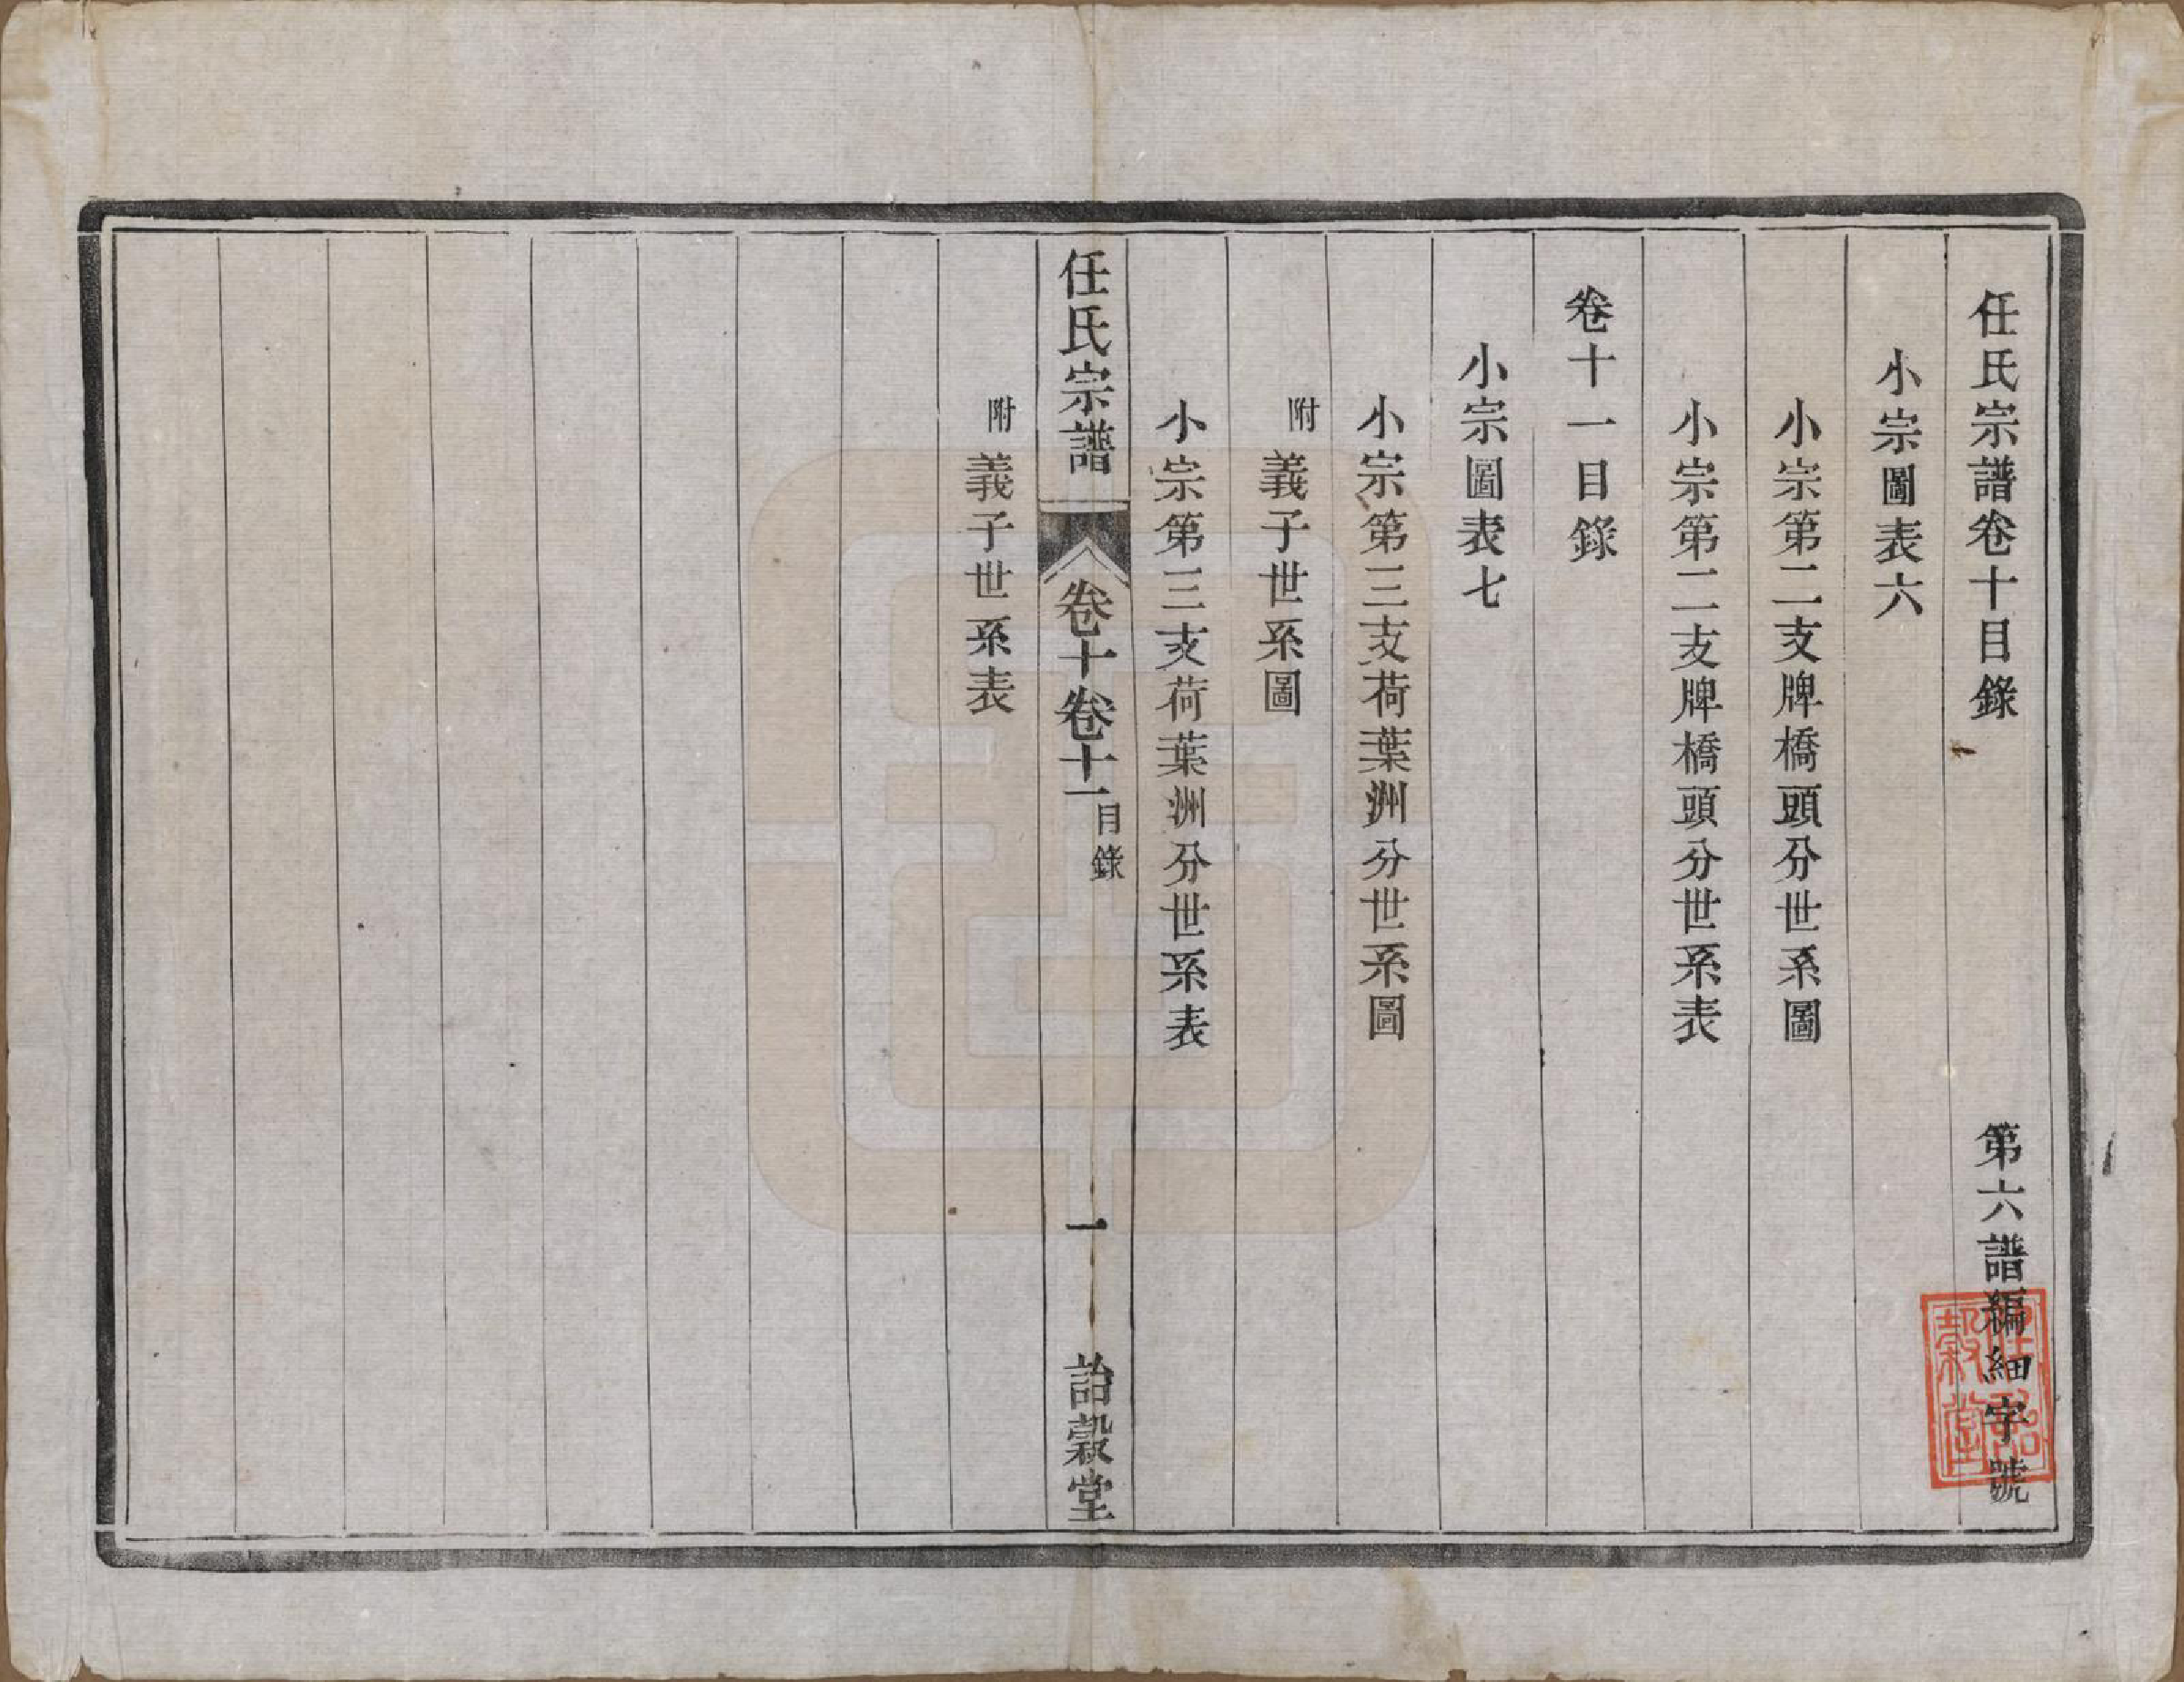 任氏宗譜卷十目錄　第六譜編細字號
小宗圖表六
小宗第二支牌橋頭分世系圖
小宗第二支牌橋頭分世系表
卷十一目錄
小宗圖表七
小宗第三支荷葉洲分世系圖
附義子世系圖
小宗第三支荷葉洲分世系表
任氏宗譜　卷十卷十一目錄　一　詒穀堂
附義子世系表